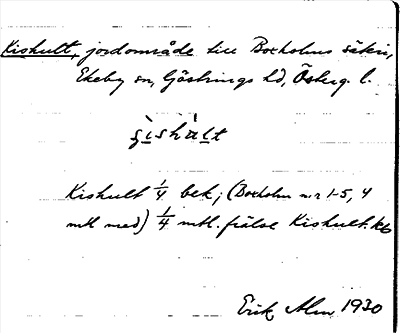 Kishult, jordområde till Boxholms säteri,
Ekeby sn, Göstrings hd, Österg. l.
Kishult 1/4 bek; (Boxholm nr 1-5, 4
mtl med) 1/4 mtl. frälse Kishult.
Erik Alm 1930